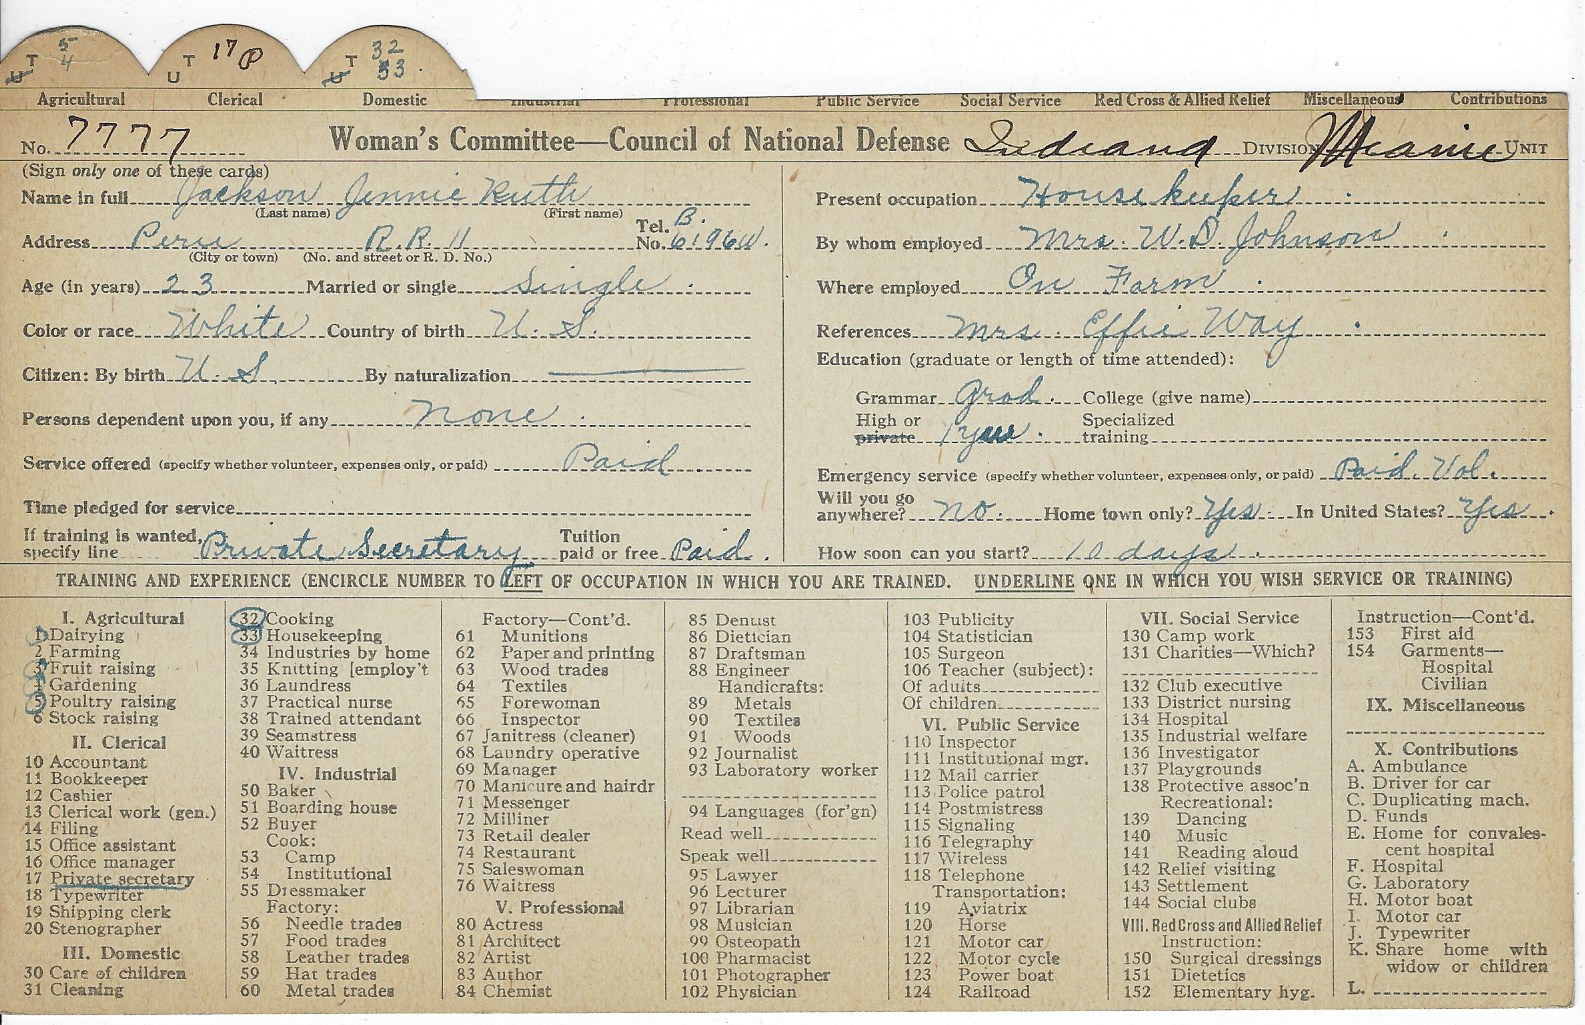 T 5 4 U
T 17 P U
T 32 33 U
Agricultural Clerical Domestic Industrial Professional Public Service Social Service Red Cross & Allied Relief Miscellaneous Contributions
No. 7777 Woman's Committee—Council of National Defense Indiana DIVISION UNIT
(Sign only one of these cards)
Name in full Jackson Jennie Ruth
(Last name) (First name)
Address Peru R.R. 11 Tel. No. B. 6196W.
(City or town) (No. and street or R. D. No.)
Age (in years) 23 Married or single Single
Color or race White Country of birth U. S.
Citizen: By birth U. S. By naturalization
Persons dependent upon you, if any none
Service offered (specify whether volunteer, expenses only, or paid) Paid
Time pledged for service
If training is wanted, specify line Private Secretary Tuition paid or free Paid.
Present occupation Housekeeper
By whom employed Mrs. W. D. Johnson
Where employed On Farm
References Mrs. Effie Way
Education (graduate or length of time attended):
Grammar Grad. College (give name)
High or private 1 year. Specialized training
Emergency service (specify whether volunteer, expenses only, or paid) Paid. Vol.
Will you go anywhere? no. Home town only? Yes In United States? Yes.
How soon can you start? 10 days.
TRAINING AND EXPERIENCE (ENCIRCLE NUMBER TO LEFT OF OCCUPATION IN WHICH YOU ARE TRAINED. UNDERLINE ONE IN WHICH YOU WISH SERVICE OR TRAINING)
I. Agricultural
1 Dairying
2 Farming
3 Fruit raising
4 Gardening
5 Poultry raising
6 Stock raising
II. Clerical
10 Accountant
11 Bookkeeper
12 Cashier
13 Clerical work (gen.)
14 Filing
15 Office assistant
16 Office manager
17 Private secretary
18 Typewriter
19 Shipping clerk
20 Stenographer
III. Domestic
30 Care of children
31 Cleaning
32 Cooking
33 Housekeeping
34 Industries by home
35 Knitting [employ't
36 Laundress
37 Practical nurse
38 Trained attendant
39 Seamstress
40 Waitress
IV. Industrial
50 Baker
51 Boarding house
52 Buyer
Cook:
53 Camp
54 Institutional
55 Dressmaker
Factory:
56 Needle trades
57 Food trades
58 Leather trades
59 Hat trades
60 Metal trades
Factory—Cont'd.
61 Munitions
62 Paper and printing
63 Wood trades
64 Textiles
65 Forewoman
66 Inspector
67 Janitress (cleaner)
68 Laundry operative
69 Manager
70 Manicure and hairdr
71 Messenger
72 Milliner
73 Retail dealer
74 Restaurant
75 Saleswoman
76 Waitress
V. Professional
80 Actress
81 Architect
82 Artist
83 Author
84 Chemist
85 Dentist
86 Dietician
87 Draftsman
88 Engineer
Handicrafts:
89 Metals
90 Textiles
91 Woods
92 Journalist
93 Laboratory worker
94 Languages (for'gn)
Read well
Speak well
95 Lawyer
96 Lecturer
97 Librarian
98 Musician
99 Osteopath
100 Pharmacist
101 Photographer
102 Physician
103 Publicity
104 Statistician
105 Surgeon
106 Teacher (subject):
Of adults
Of children
VI. Public Service
110 Inspector
111 Institutional mgr.
112 Mail carrier
113 Police patrol
114 Postmistress
115 Signaling
116 Telegraphy
117 Wireless
118 Telephone
Transportation:
119 Aviatrix
120 Horse
121 Motor car
122 Motor cycle
123 Power boat
124 Railroad
VII. Social Service
130 Camp work
131 Charities—Which?
132 Club executive
133 District nursing
134 Hospital
135 Industrial welfare
136 Investigator
137 Playgrounds
138 Protective assoc'n
Recreational:
139 Dancing
140 Music
141 Reading aloud
142 Relief visiting
143 Settlement
144 Social clubs
VIII. Red Cross and Allied Relief
Instruction:
150 Surgical dressings
151 Dietetics
152 Elementary hyg.
Instruction—Cont'd.
153 First aid
154 Garments—
Hospital
Civilian
IX. Miscellaneous
X. Contributions
A. Ambulance
B. Driver for car
C. Duplicating mach.
D. Funds
E. Home for convales-
cent hospital
F. Hospital
G. Laboratory
H. Motor boat
I. Motor car
J. Typewriter
K. Share home with
widow or children
L.